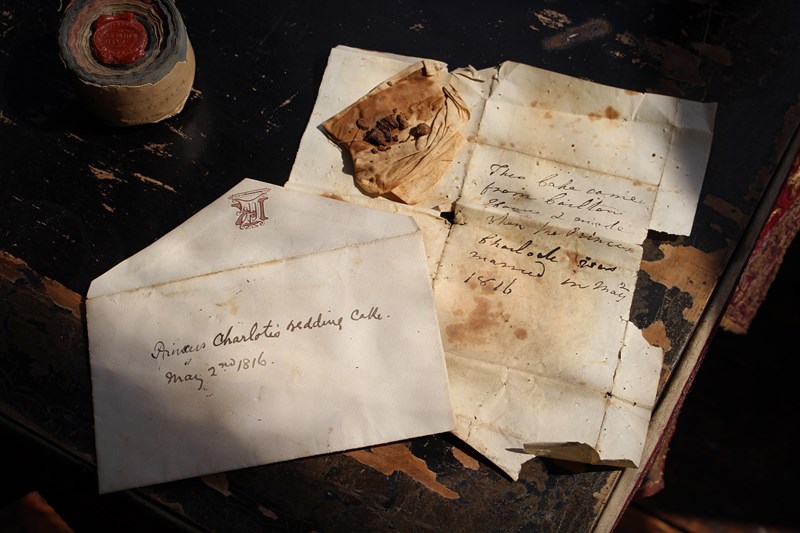 Princess Charlotte's Wedding Cake.
May 2nd 1816.
This Cake came
from Carlton
House & made
when the Princess
Charlotte was
married in May
1816